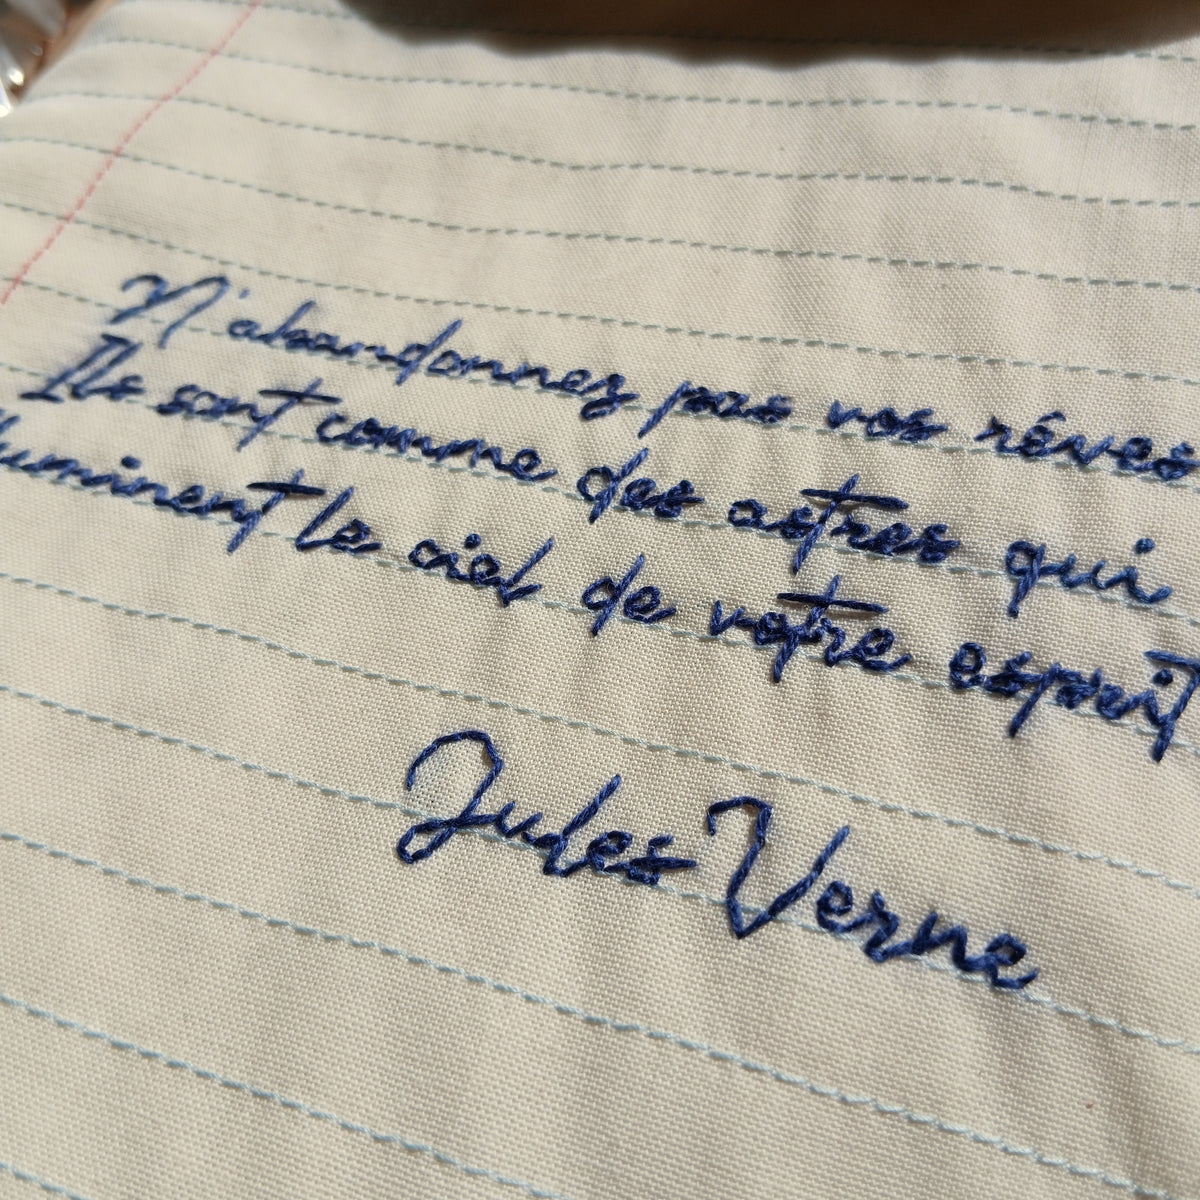 N'abandonnez pas vos rêves
Ils sont comme des astres qui
illuminent le ciel de votre esprit
Jules Verne